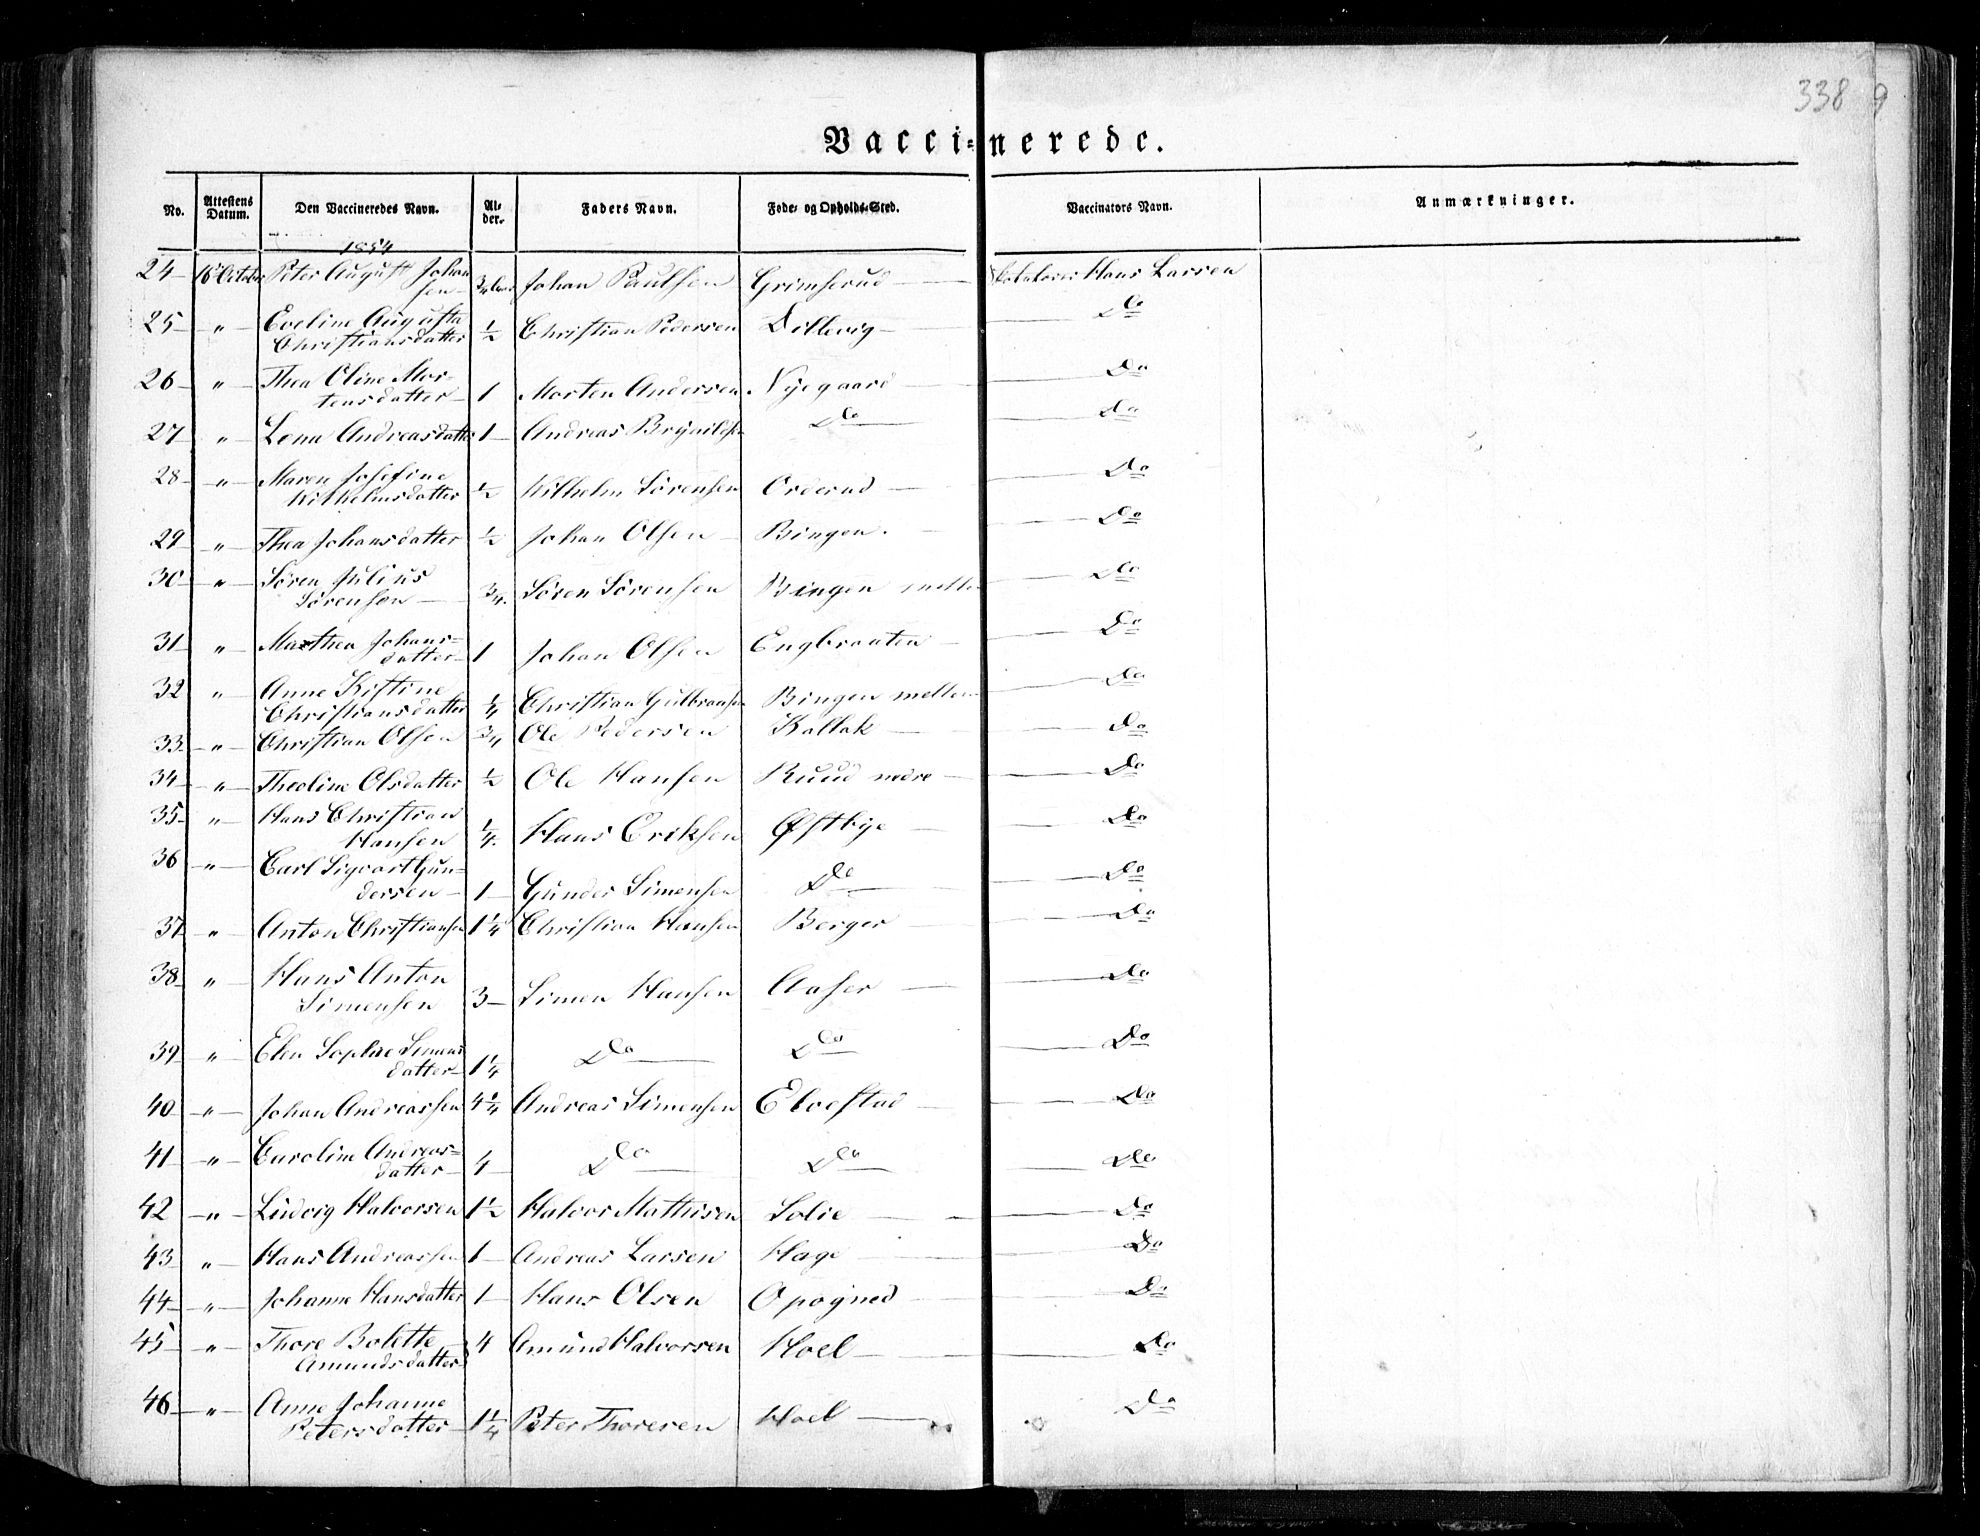 338 9
Vacci-nerede.
No. Attestens Datum. Den Vaccineredes Navn. Al-der. Faders Navn. Føde- og Opholds-Sted. Vaccinators Navn. Anmærkninger.
1854
24 16 October Peter August Johansen 3/4 Johan Paulsen Grimserud Hans Larsen
25 " Eveline Augusta Christiansdatter 1/2 Christian Pedersen Dillevig Do
26 " Thea Oline Mortensdatter 1 Morten Andersen Nyegaard Do
27 " Lena Andreasdatter 1 Andreas Brynildsen Do Do
28 " Maren Josefine Wilhelmsdatter 1/2 Wilhelm Sørensen Orderud Do
29 " Thea Johansdatter 1/2 Johan Olsen Bingen. Do
30 " Søren Julius Sørensen 3/4. Søren Sørensen Bingen mellem Do
31 " Marthea Johansdatter 1 Johan Olsen Engbraaten Do
32 " Anne Kistine Christiansdatter 1/4 Christian Gulbransen Bingen mellem Do
33 " Christian Olsen 3/4 Ole Pedersen Kallak Do
34 " Theoline Olsdatter 1/2 Ole Hansen Ruud nedre Do
35 " Hans Christian Hansen 1/4. Hans Eriksen Østbye Do
36 " Carl Sigvart Gundersen 1 Gunder Simensen Do Do
37 " Anton Christiansen 1 1/4 Christian Hansen Berger Do
38 " Hans Anton Simensen 3 Simen Hansen Aaser Do
39 " Elen Sophie Simensdatter 1 1/4 Do Do Do
40 " Johan Andreassen 4 1/4 Andreas Simensen Eloestad Do
41 " Caroline Andreasdatter 4 Do Do Do
42 " Ludvig Halvorsen 1 1/2 Halvor Mathisen Solie Do
43 " Hans Andreassen 1 Andreas Larsen Hage Do
44 " Johanne Hansdatter 1 Hans Olsen Opogned Do
45 " Thore Bolette Amundsdatter 4 Amund Halvorsen Hoel Do
46 " Anne Johanne Petersdatter 1 1/4 Peter Thoresen Hoel Do